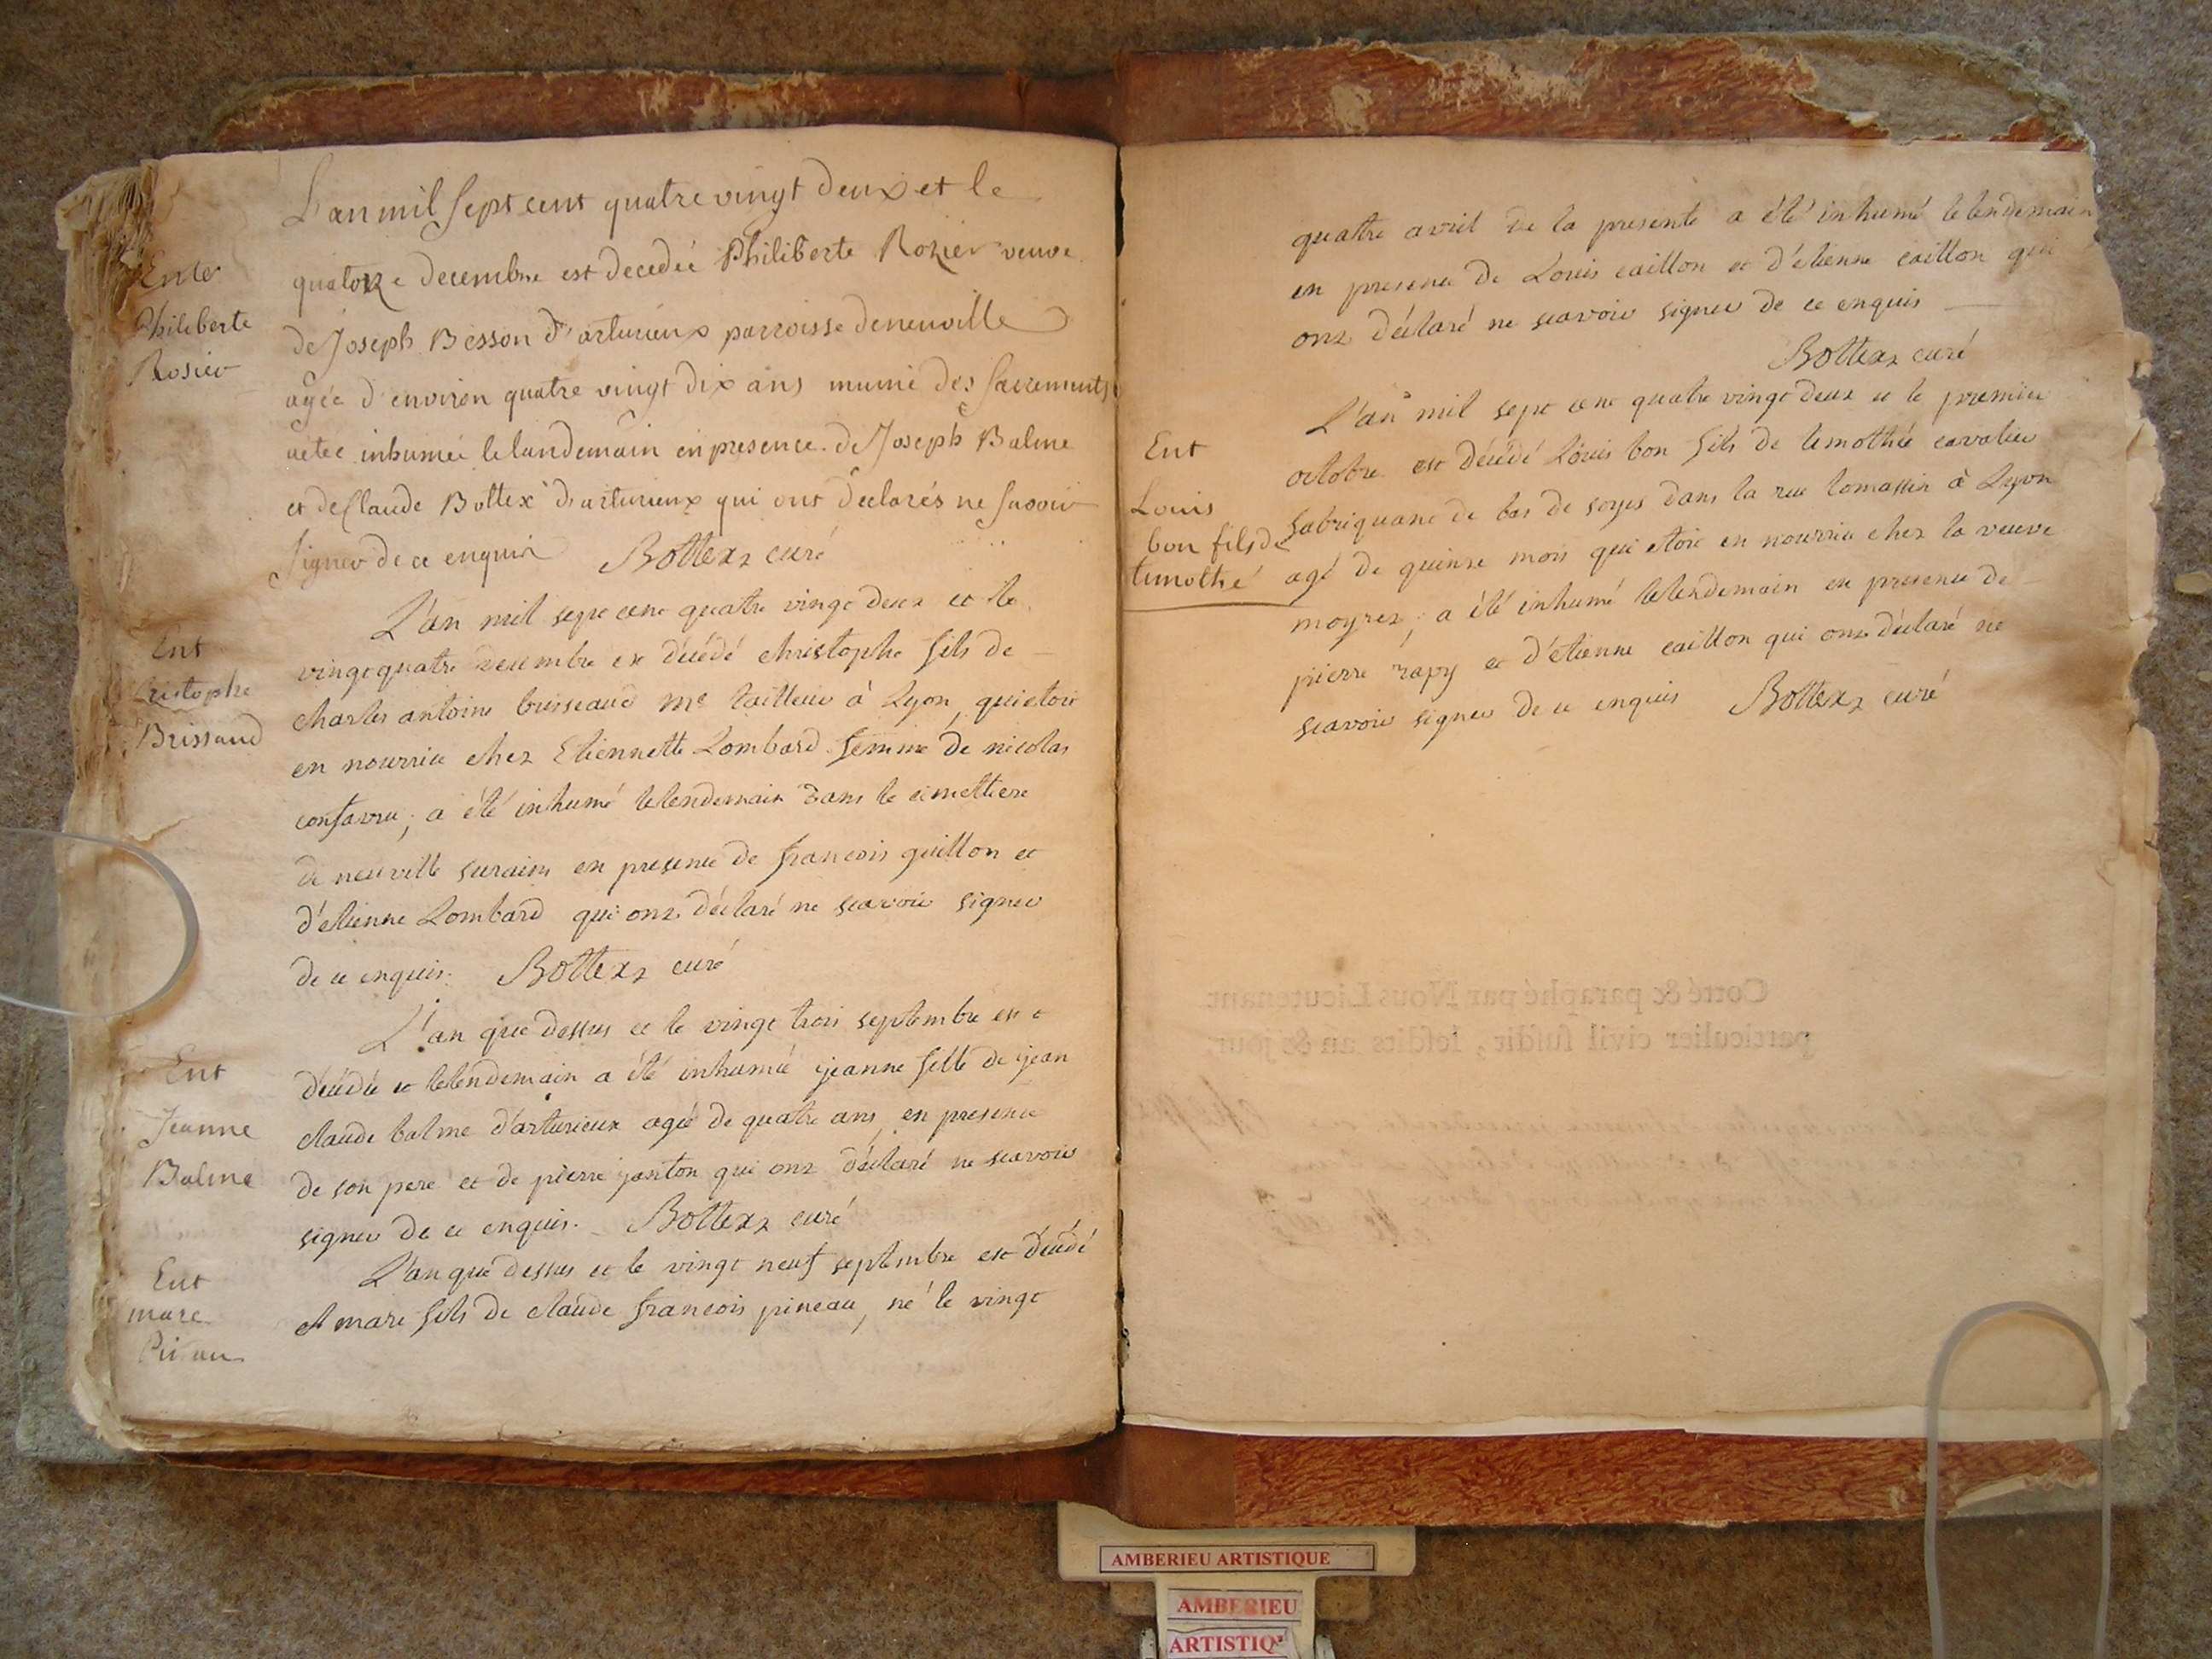 L'an mil sept cent quatre vingt deux et le
quatorze decembre est decedée Philiberte Rozier veuve
de Joseph Besson d'arturieux parroisse de neuville
agée d'environ quatre vingt dix ans munie des sacrements
a etée inhumée le landemain en presence de Joseph Balme
et de Claude Bottex d'arturieux qui ont declarés ne savoir
signer de ce enquis Bottex curé
Enter
Philiberte
Rosier
L'an mil sept cent quatre vingt deux et le
vingt quatre decembre est décédé christophe fils de
charles antoine buisseaud me tailleur à Lyon, qui etoit
en nourrice chez Etiennette Lombard femme de nicolas
confavru; a été inhumé le lendemain dans le cimettiere
de neuville surains en presence de francois guillon et
d'etienne Lombard qui ont déclaré ne scavoir signer
de ce enquis. Bottex curé
Ent
Cristophe
Brissaud
L'an que dessus et le vingt trois septembre est
décédée et le lendemain a été inhumée jeanne fille de jean
claude balme d'arturieux agée de quatre ans, en presence
de son pere et de pierre janton qui ont déclaré ne scavoir
signer de ce enquis. Bottex curé
Ent
Jeanne
Balme
L'an que dessus et le vingt neuf septembre est décédé
marc fils de claude francois pineau, né le vingt
Ent
marc
quatre avril de la presente a été inhumé le lendemain
en presence de Louis caillon et d'etienne caillon qui
ont déclaré ne scavoir signer de ce enquis
Bottex curé
L'an mil sept cent quatre vingt deux et le premier
octobre est décédé Louis bon fils de timothée cavalier
fabriquant de bas de soyes dans la rue tomassin à Lyon
agé de quinse mois qui etoit en nourrice chez la veuve
moyret; a été inhumé le lendemain en presence de
pierre rapy et d'etienne caillon qui ont déclaré ne
scavoir signer de ce enquis Bottex curé
Ent
Louis
bon fils de
timothé
Cotté & paraphé par Nous Lieutenant
particulier civil susdit, lesdits an & jour.
AMBERIEU ARTISTIQUE
AMBERIEU
ARTISTIQ